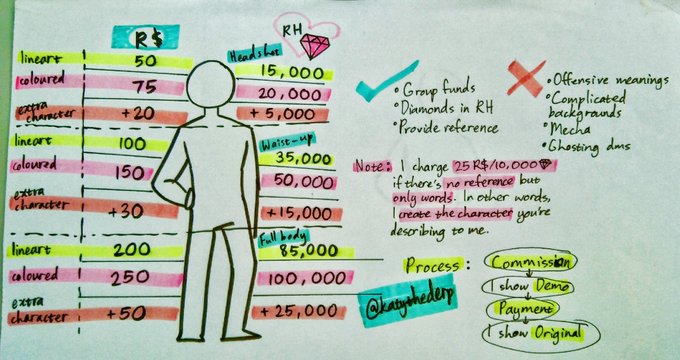 R$
RH
Headshot
lineart 50 15,000
coloured 75 20,000
extra character +20 +5,000
Waist-up
lineart 100 35,000
coloured 150 50,000
extra character +30 +15,000
Full body
lineart 200 85,000
coloured 250 100,000
extra character +50 +25,000
@katythederp
• Group funds
• Diamonds in RH
• Provide reference
• Offensive meanings
• Complicated
backgrounds
• Mecha
• Ghosting dms
Note: I charge 25 R$/10,000
if there's no reference but
only words. In other words,
I create the character you're
describing to me.
Process:
Commission
I show Demo
Payment
I show Original